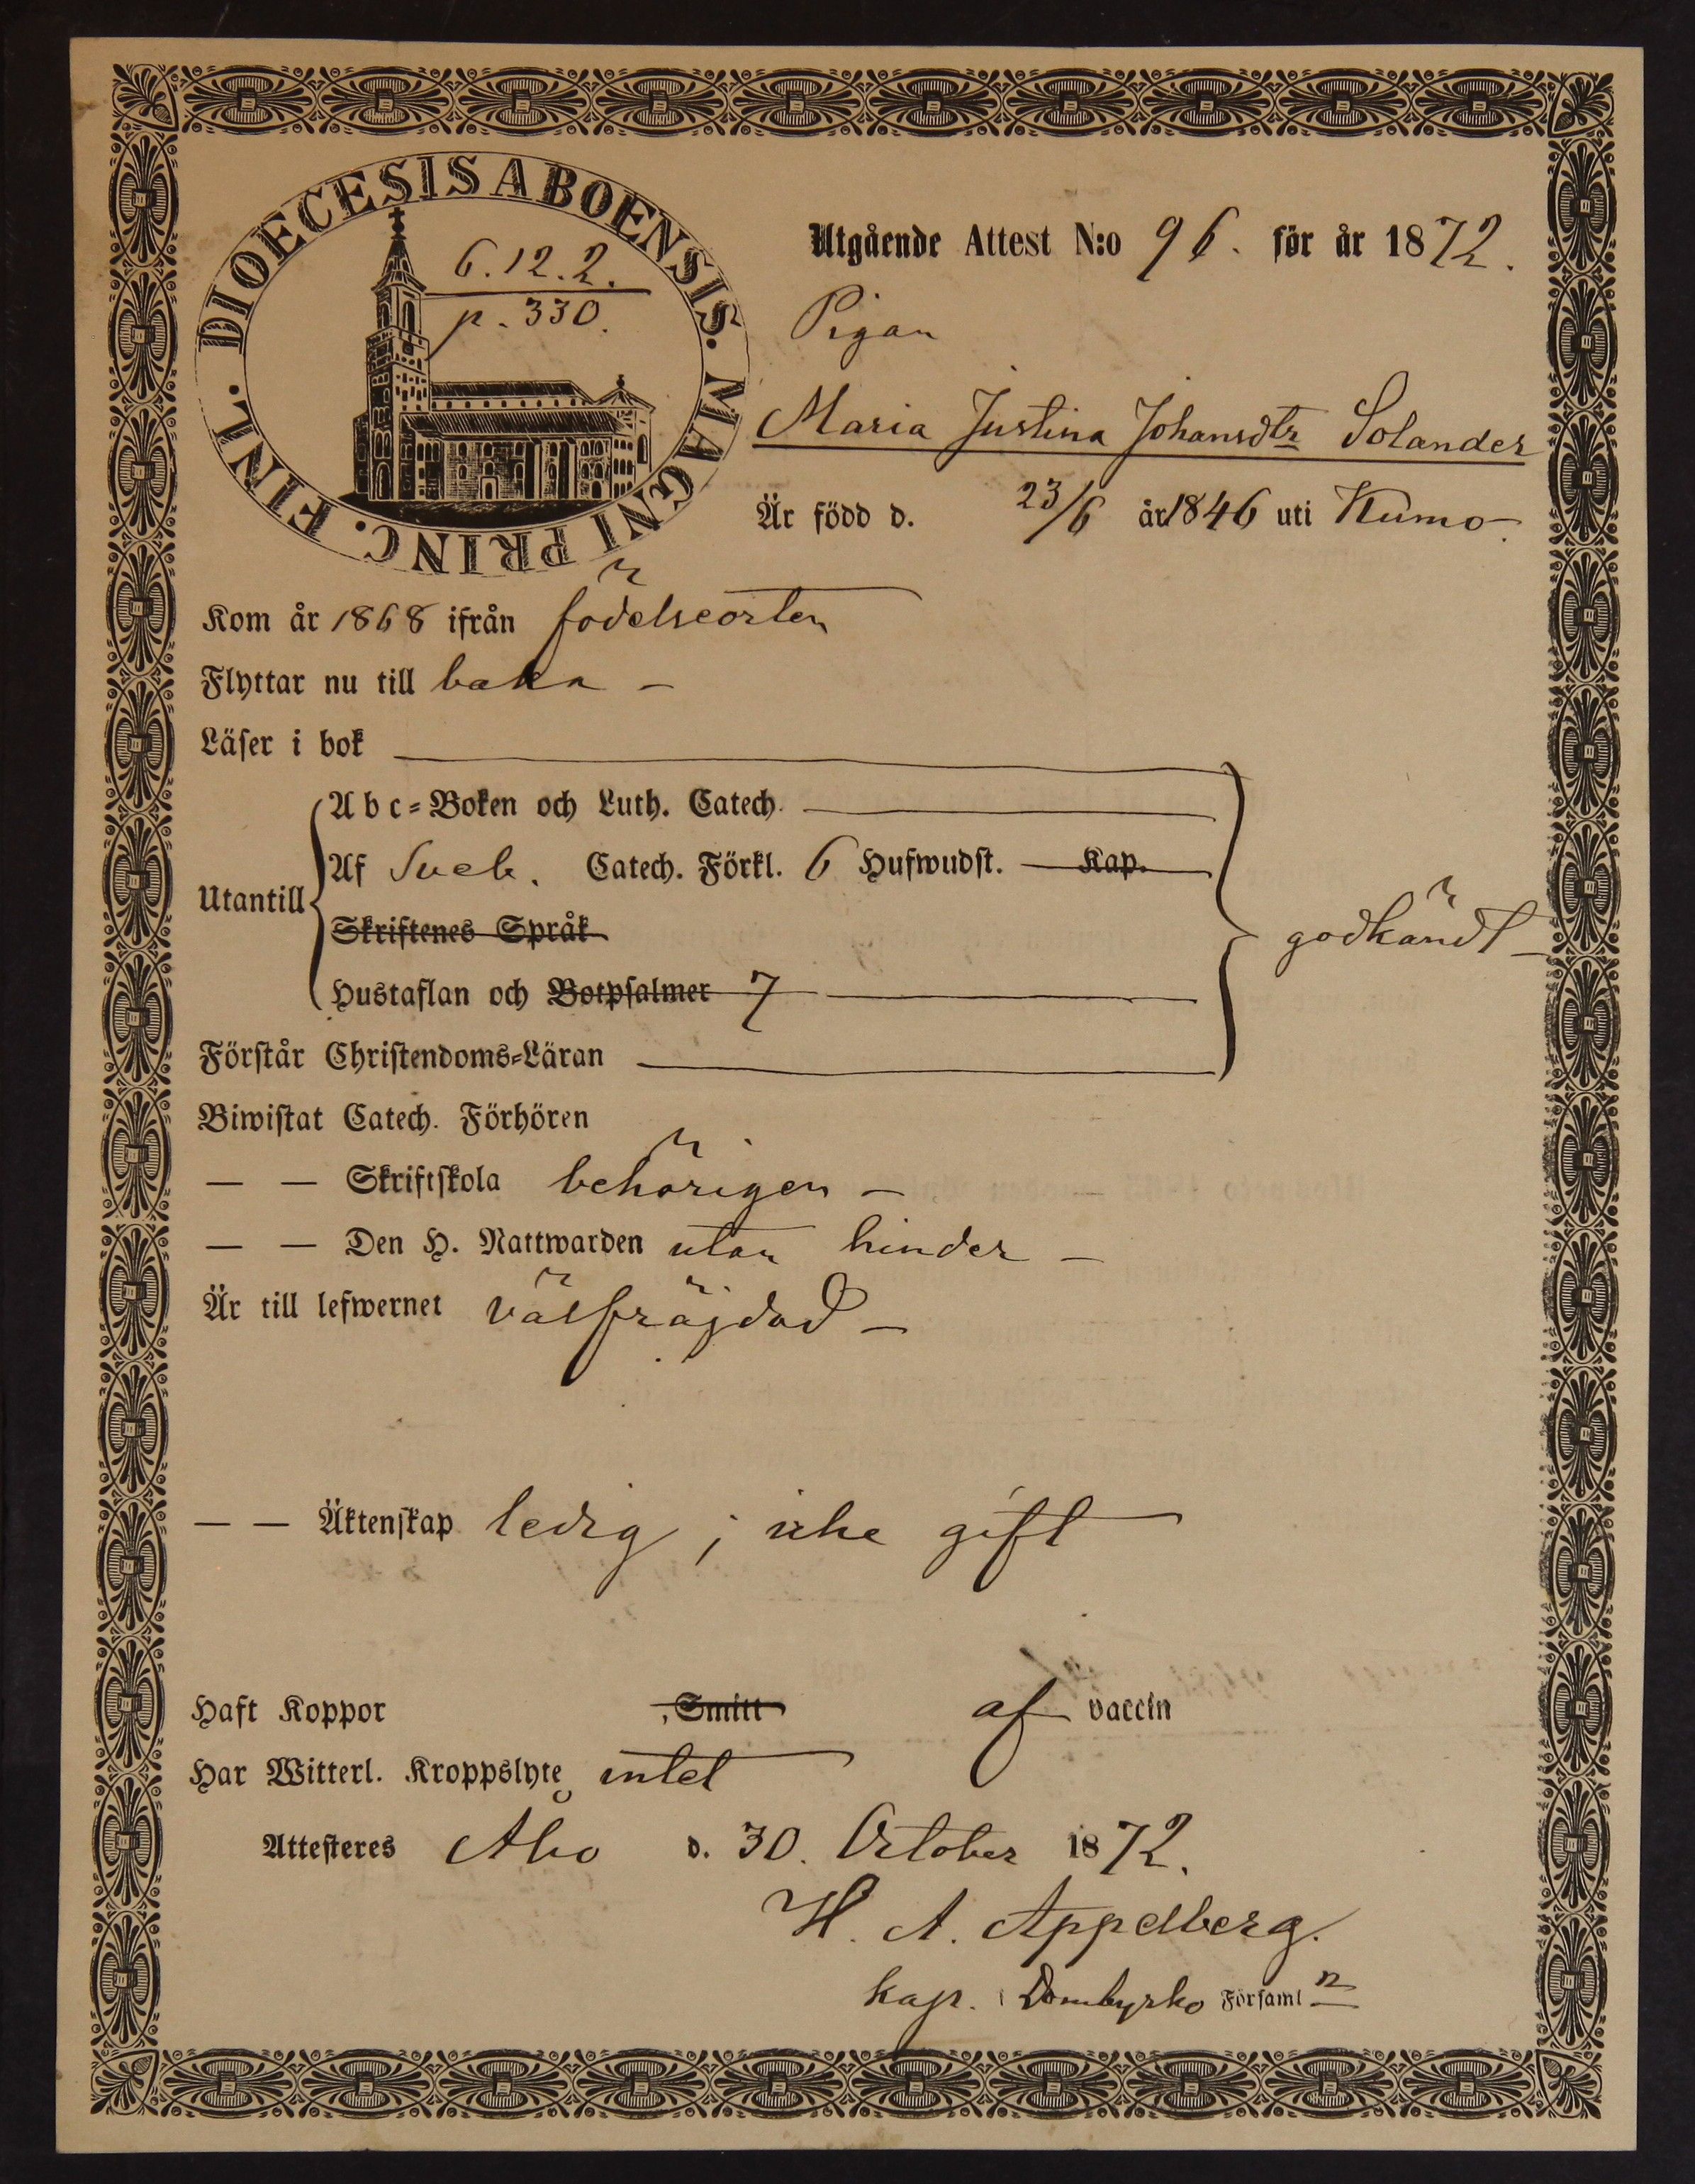 DIOECESIS ABOENSIS. MAGNI PRINC. FINL.
6.12.2.
p. 330.
Utgående Attest N:o 96. för år 1872.
Pigan
Maria Justina Johansdtr Solander
Är född d. 23/6 år 1846 uti Kumo.
Kom år 1868 ifrån födelseorten
Flyttar nu till baka –
Läser i bok
Abc=Boken och Luth. Catech.
Utantill
Af Sveb. Catech. Förkl. 6 Hufwudst. Kap.
Skriftenes Språk
godkändt –
Hustaflan och Botpsalmer 7
Förstår Christendoms=Läran
Biwistat Catech. Förhören
— — Skriftskola behörigen –
— — Den H. Nattwarden utan hinder –
Är till lefwernet välfräjdad –
— — Äktenskap ledig; icke gift
Haft Koppor , Smitt af vaccin
Har Witterl. Kroppslyte intet
Attesteres Åbo d. 30. October 1872.
H. A. Appelberg.
kapl. i Domkyrko Församl n